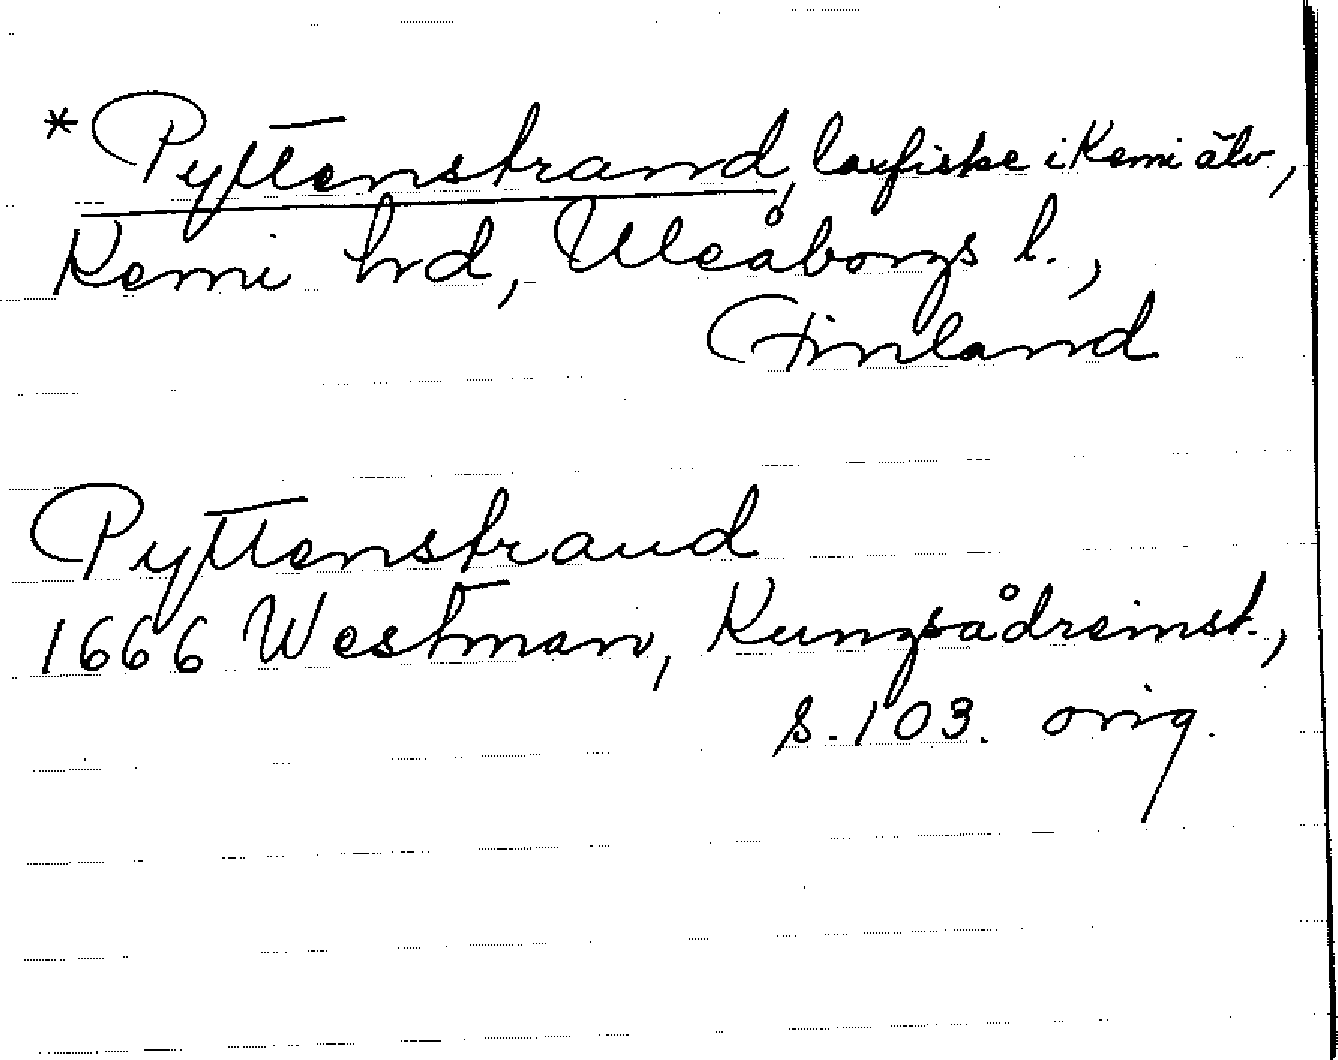 * Pyttenstrand, laxfiske i Kemi älv.,
Kemi hrd, Uleåborgs l.,
Finland
Pyttenstrand
1666 Westman, Kungsådreinst.,
s. 103. orig.